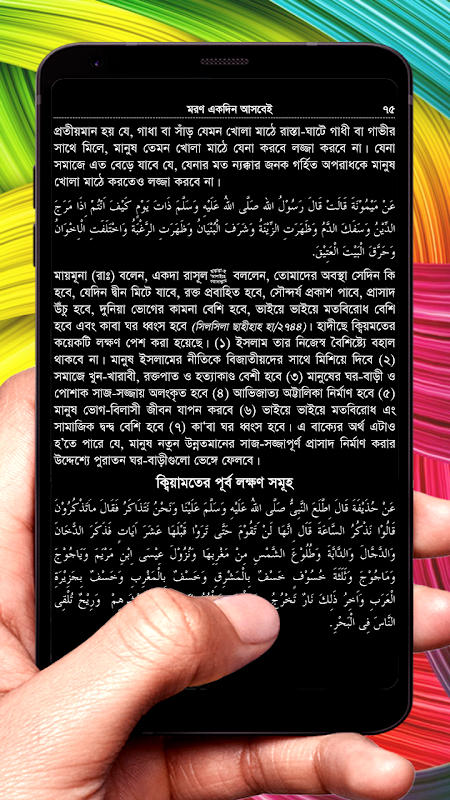 মরণ একদিন আসবেই ৭৫
প্রতীয়মান হয় যে, গাধা বা সাঁড় যেমন খোলা মাঠে রাস্তা-ঘাটে গাধী বা গাভীর
সাথে মিলে, মানুষ তেমন খোলা মাঠে যেনা করবে লজ্জা করবে না। যেনা
সমাজে এত বেড়ে যাবে যে, যেনার মত ন্যক্কার জনক গর্হিত অপরাধকে মানুষ
খোলা মাঠে করতেও লজ্জা করবে না।
عَنْ مَيْمُوْنَةَ قَالَتْ قَالَ رَسُوْلُ اللهِ صَلَّى اللهُ عَلَيْهِ وَسَلَّمَ ذَاتَ يَوْمٍ كَيْفَ اَنْتُمْ اِذَا مَرَجَ
الدِّيْنُ وَسُفِكَ الدَّمُ وَظَهَرَتِ الزِّيْنَةُ وَشَرَفَ الْبُنْيَانُ وَظَهَرَتِ الرَّغْبَةُ وَاخْتَلَفَتِ الْاِخْوَانُ
وَحَرَّقَ الْبَيْتَ الْعَتِيْقَ.
মায়মূনা (রাঃ) বলেন, একদা রাসূল বললেন, তোমাদের অবস্থা সেদিন কি
হবে, যেদিন দ্বীন মিটে যাবে, রক্ত প্রবাহিত হবে, সৌন্দর্য প্রকাশ পাবে, প্রাসাদ
উঁচু হবে, দুনিয়া ভোগের কামনা বেশি হবে, ভাইয়ে ভাইয়ে মতবিরোধ বেশি
হবে এবং কাবা ঘর ধ্বংস হবে (সিলসিলা ছাহীহাহ হা/২৭৪৪)। হাদীছে ক্বিয়মতের
কয়েকটি লক্ষণ পেশ করা হয়েছে। (১) ইসলাম তার নিজেস্ব বৈশিষ্ট্যে বহাল
থাকবে না। মানুষ ইসলামের নীতিকে বিজাতীয়দের সাথে মিশিয়ে দিবে (২)
সমাজে খুন-খারাবী, রক্তপাত ও হত্যাকাণ্ড বেশী হবে (৩) মানুষের ঘর-বাড়ী ও
পোশাক সাজ-সজ্জায় অলংকৃত হবে (৪) আভিজাত্য অট্টালিকা নির্মাণ হবে (৫)
মানুষ ভোগ-বিলাসী জীবন যাপন করবে (৬) ভাইয়ে ভাইয়ে মতবিরোধ এং
সামাজিক দ্বন্দ্ব বেশি হবে (৭) কা'বা ঘর ধ্বংস হবে। এ বাক্যের অর্থ এটাও
হ'তে পারে যে, মানুষ নতুন উন্নতমানের সাজ-সজ্জাপূর্ণ প্রাসাদ নির্মাণ করার
উদ্দেশ্যে পুরাতন ঘর-বাড়ীগুলো ভেঙ্গে ফেলবে।
ক্বিয়ামতের পূর্ব লক্ষণ সমূহ
عَنْ حُذَيْفَةَ قَالَ اطَّلَعَ النَّبِيُّ صَلَّى اللهُ عَلَيْهِ وَسَلَّمَ عَلَيْنَا وَنَحْنُ نَتَذَاكَرُ فَقَالَ مَاتَذْكُرُوْنَ
قَالُوْا نَذْكُرُ السَّاعَةَ قَالَ انَّهَا لَنْ تَقُوْمَ حَتَّى تَرَوْا قَبْلَهَا عَشَرَ آيَاتٍ فَذَكَرَ الدُّخَانَ
وَالدَّجَّالَ وَالدَّابَّةَ وَطُلُوْعَ الشَّمْسِ مِنْ مَغْرِبِهَا وَنُزُوْلَ عِيْسَى اِبْنِ مَرْيَمَ وَيَاجُوْجَ
وَمَاجُوْجَ وَثَلَثَةَ خُسُوْفٍ خَسْفٌ بِالْمَشْرِقِ وَخَسْفٌ بِالْمَغْرِبِ وَخَسْفٌ بِجَزِيْرَةِ
الْعَرَبِ وَآخِرُ ذَلِكَ نَارٌ تَخْرُجُ وَرِيْحٌ تُلْقِى
النَّاسَ فِى الْبَحْرِ.